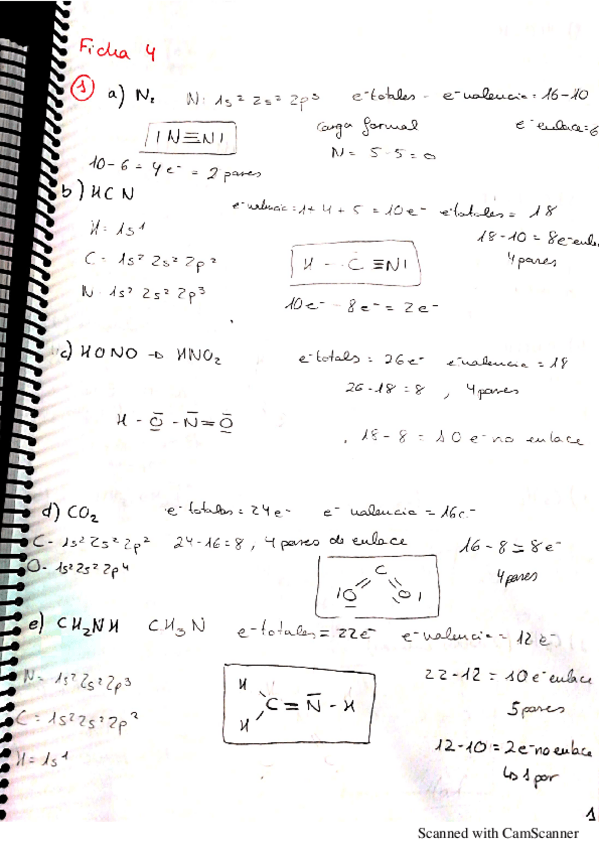 Ficha 4
① a) N₂ N: 1s² 2s² 2p³ e⁻totales - e⁻valencia = 16-10
|N≡N| carga formal e⁻enlace=6
N = 5-5=0
10-6 = 4e⁻ = 2 pares
b) HCN e⁻valencia = 1+4+5 = 10e⁻ e⁻totales = 18
H = 1s¹ 18-10 = 8e⁻enla
C - 1s² 2s² 2p² H - C ≡N| 4 pares
N - 1s² 2s² 2p³ 10e⁻ - 8e⁻ = 2e⁻
c) HONO → HNO₂ e⁻totals = 26e⁻ e⁻valencia = 18
26-18 = 8 , 4 pares
H - O - N = O
18-8 = 10 e⁻ no enlace
d) CO₂ e⁻totales = 24e⁻ e⁻ valencia = 16e⁻
C - 1s² 2s² 2p² 24-16=8, 4 pares de enlace 16-8=8e⁻
O - 1s² 2s² 2p⁴ 4 pares
|O = C = O|
e) CH₂NH CH₃N e⁻totales = 22e⁻ e⁻valencia = 12e⁻
N = 1s² 2s² 2p³ H 22-12 = 10e⁻enlace
C = N - H 5 pares
C = 1s² 2s² 2p² H
12-10 = 2e⁻no enlace
H = 1s¹ ↳ 1 par
1
Scanned with CamScanner